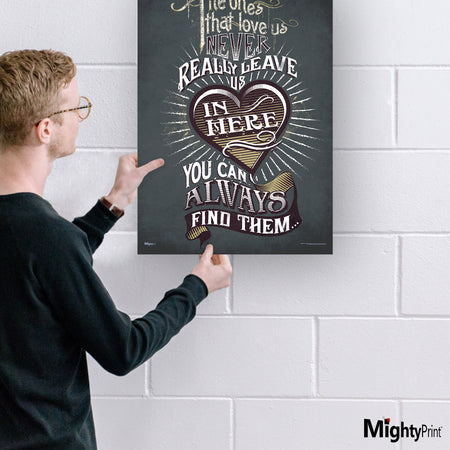 The ones
that love us
NEVER
REALLY LEAVE
US
IN
HERE
YOU CAN
ALWAYS
FIND THEM...
MightyPrint
MightyPrint